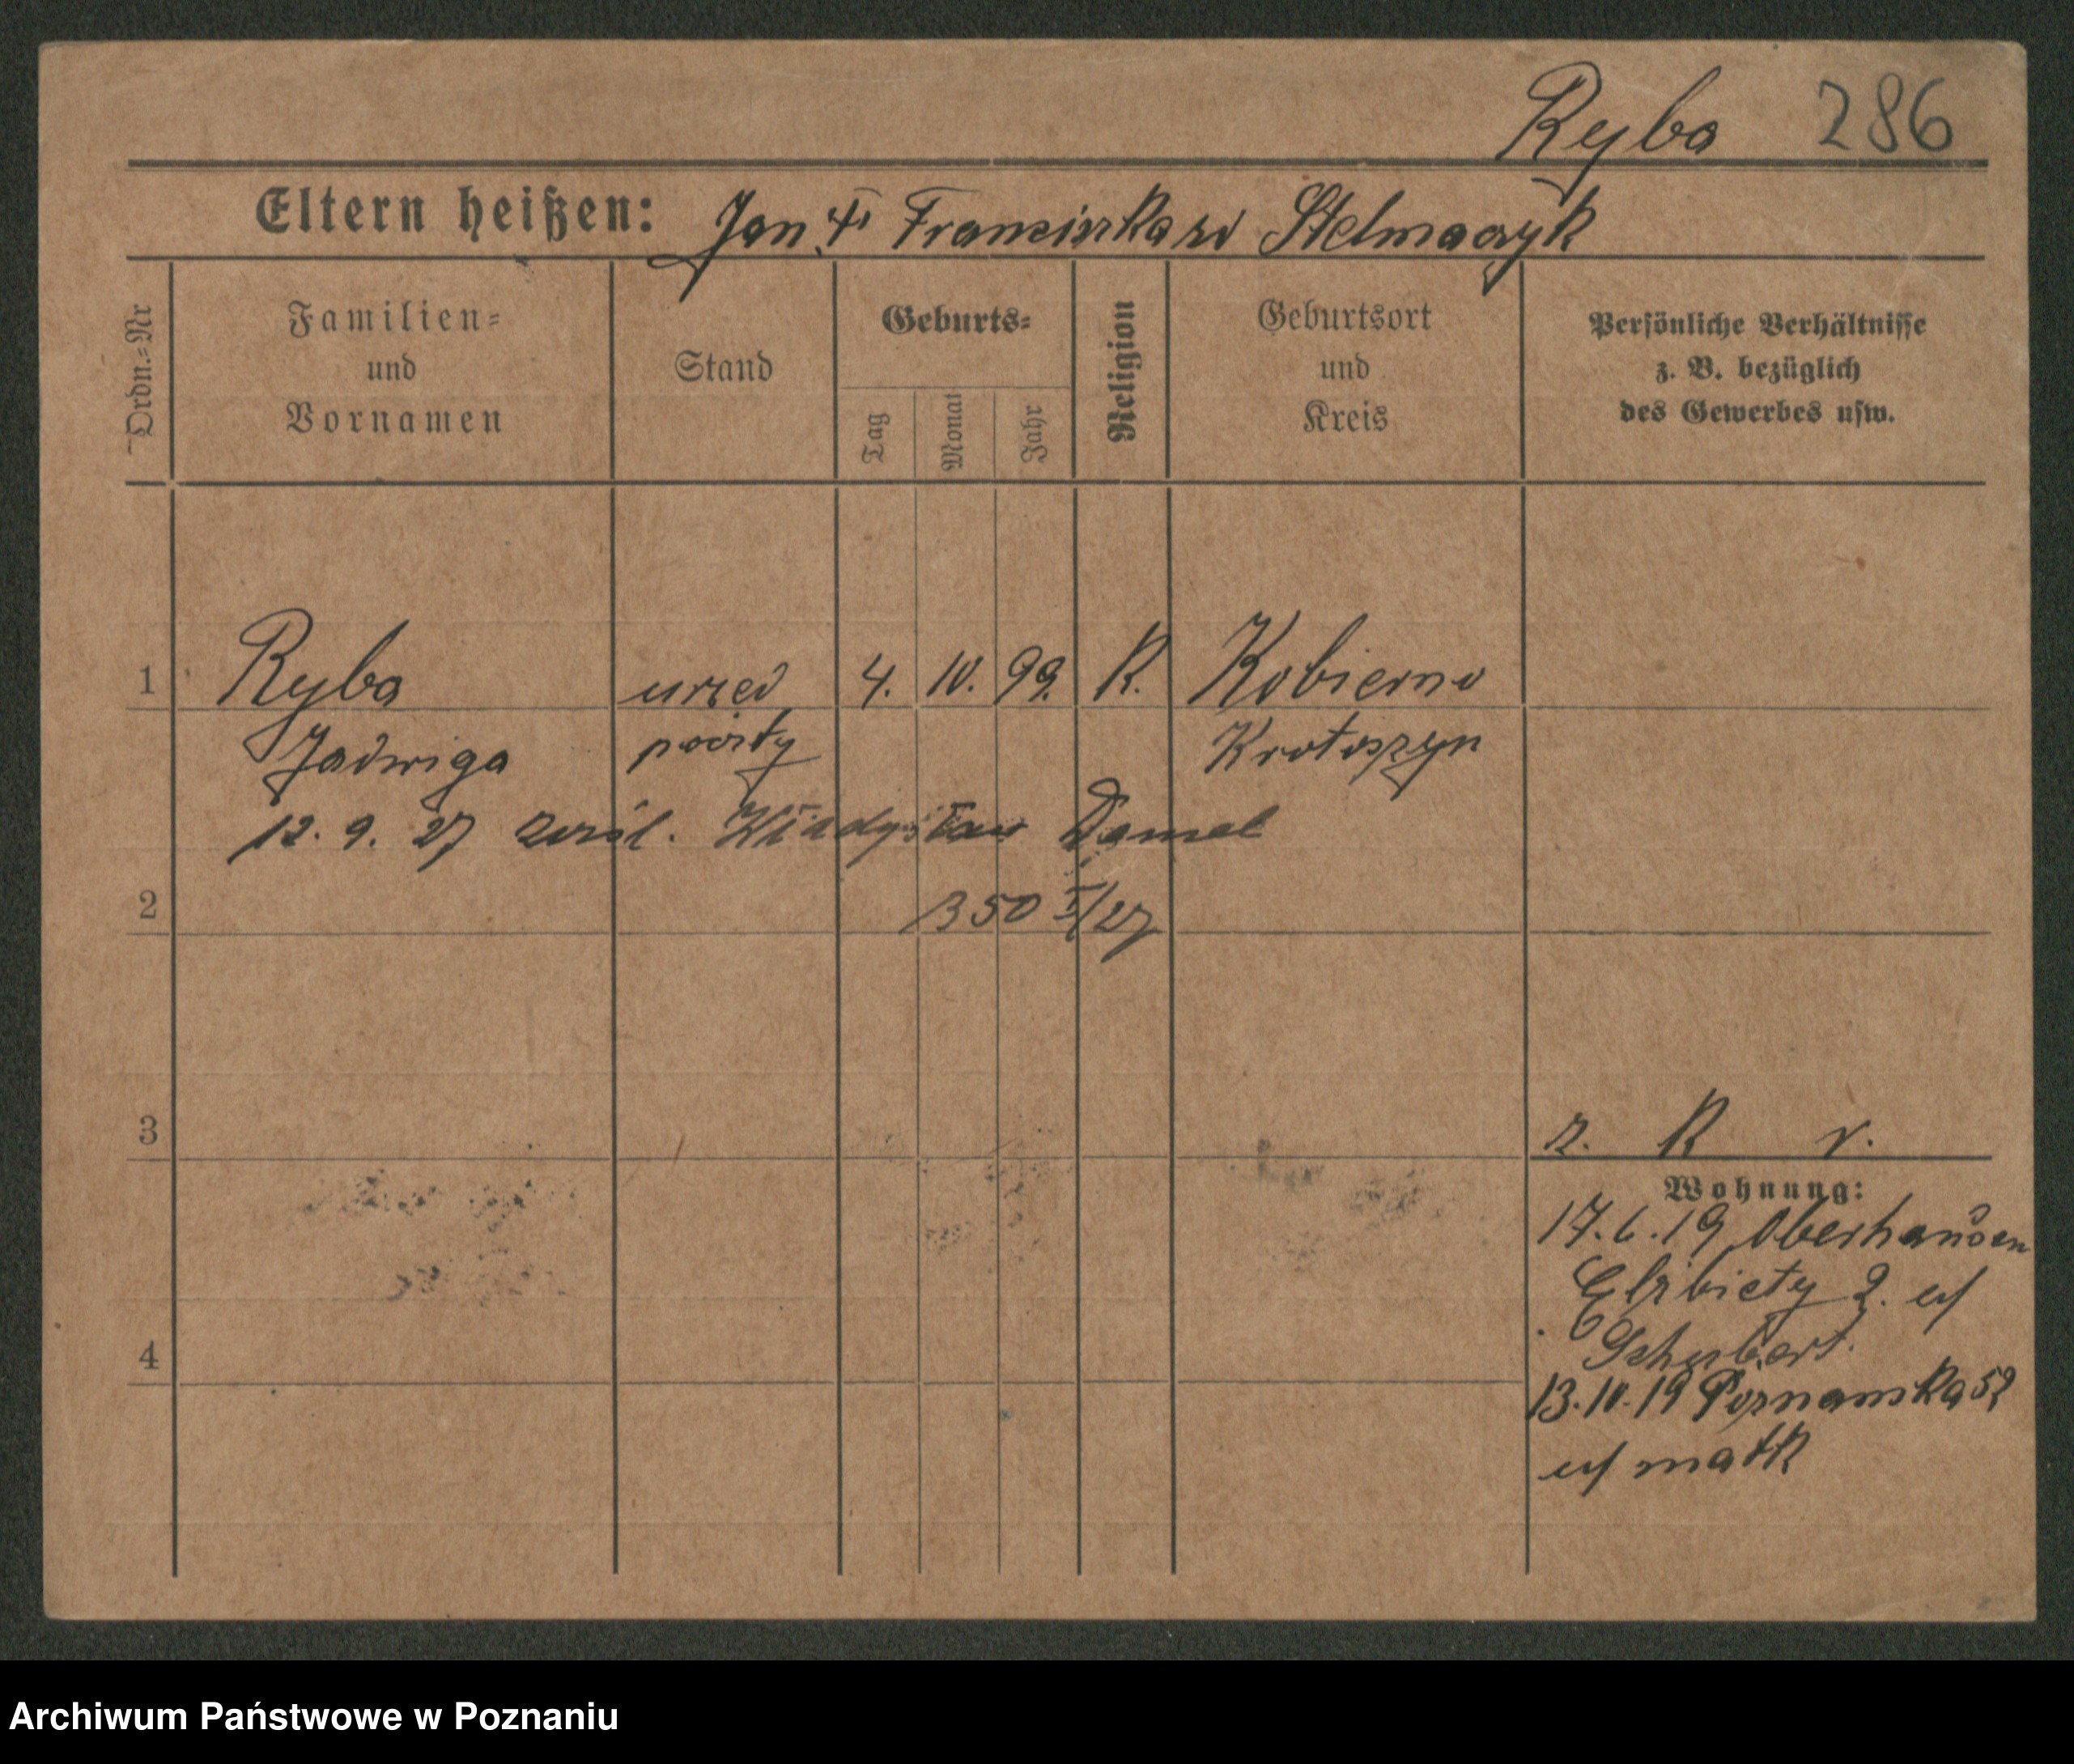 Ryba 286
Eltern heißen: Jan † Franciszka zd Stelmaczyk
Ordn.-Nr
Familien- und Vornamen
Stand
Geburts-
Tag
Monat
Jahr
Religion
Geburtsort und Kreis
Persönliche Verhältnisse
z. B. bezüglich
des Gewerbes usw.
1 Ryba urzed 4. 10. 99. R. Kobierno
Jadwiga poczty Krotoszyn
12. 9. 27 Władysław
2 350 I/27
3 z. R r.
Wohnung:
17.6.19 Oberhausen
Elzbiety 2. u/
Schubert.
4
13.10.19 Poznanska 52
u/ matk
Archiwum Państwowe w Poznaniu